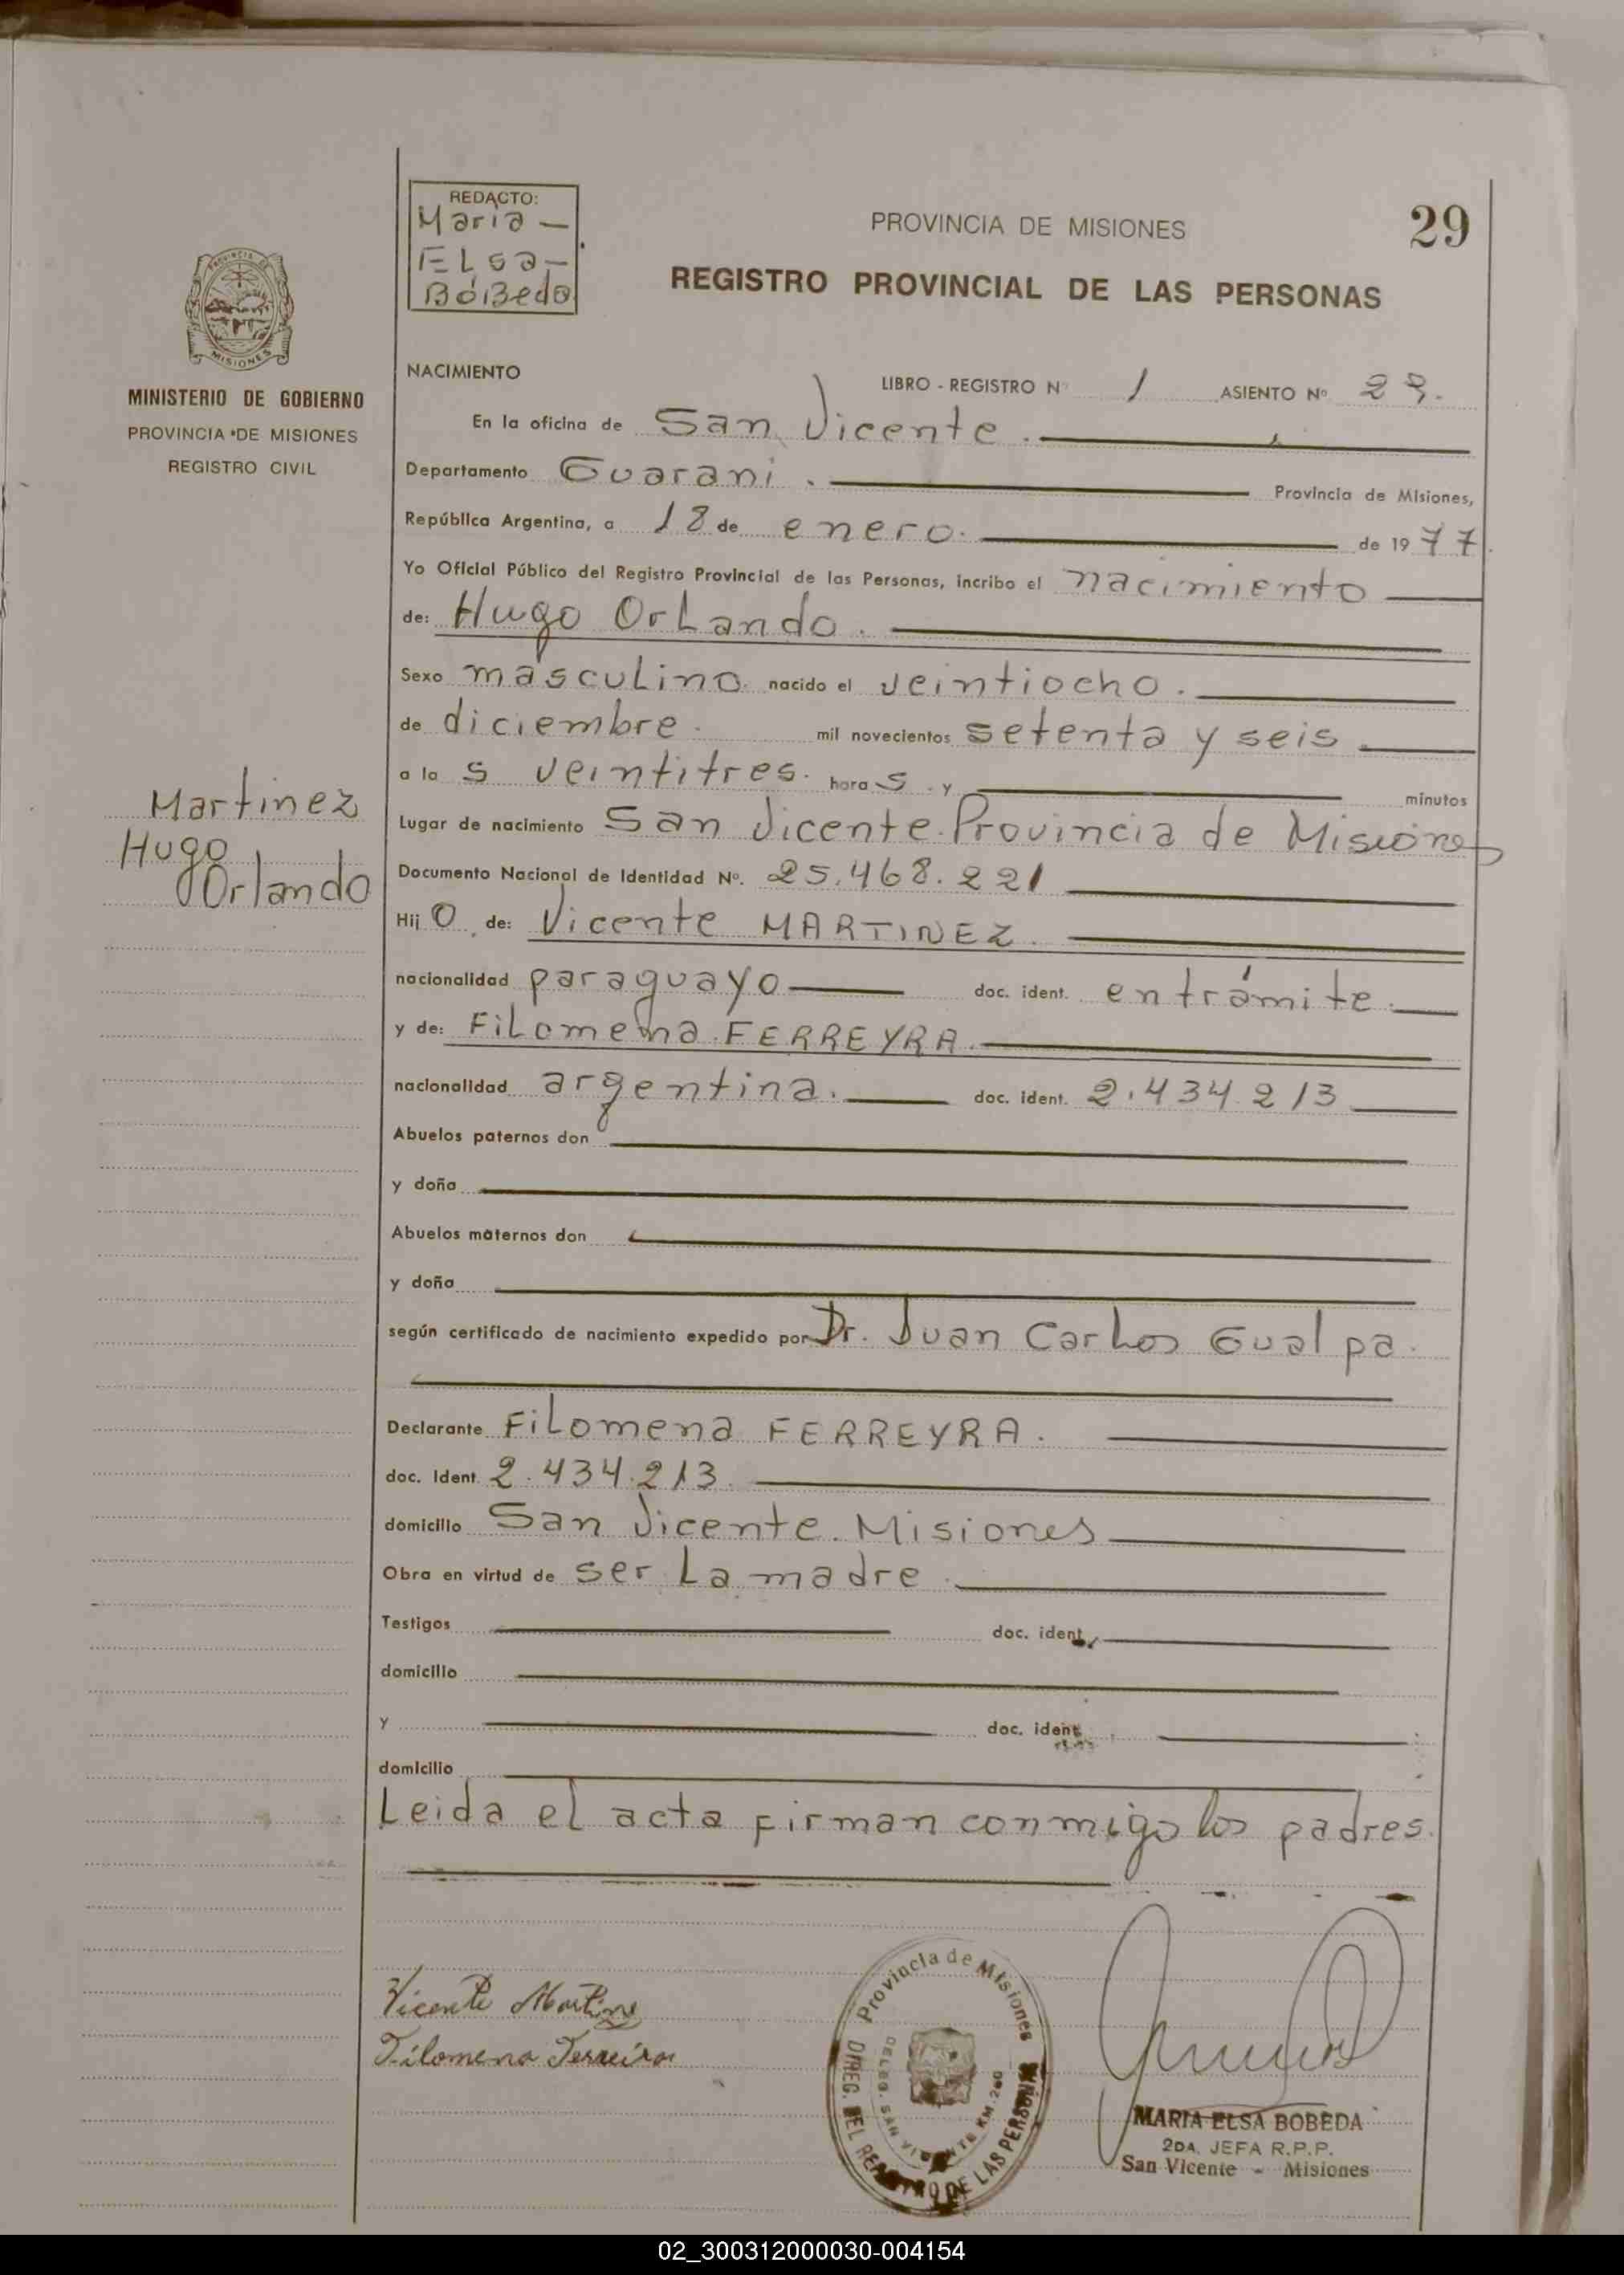 REDACTO:
Maria -
ELsa -
BóBeda
PROVINCIA DE MISIONES
29
REGISTRO PROVINCIAL DE LAS PERSONAS
PROVINCIA DE
MISIONES
MINISTERIO DE GOBIERNO
PROVINCIA DE MISIONES
REGISTRO CIVIL
NACIMIENTO
LIBRO - REGISTRO Nº 1 ASIENTO Nº 29.
En la oficina de San Vicente.
Departamento Guarani. Provincia de Misiones,
República Argentina, a 18 de enero. de 1977.
Yo Oficial Público del Registro Provincial de las Personas, incribo el nacimiento
de: Hugo Orlando.
Sexo masculino. nacido el veintiocho.
de diciembre. mil novecientos setenta y seis
a la s veintitres. hora s y minutos
Lugar de nacimiento San Vicente. Provincia de Misiones
Documento Nacional de Identidad Nº. 25.468.221
Hij o de: Vicente MARTINEZ.
nacionalidad paraguayo doc. ident. en trámite.
y de: Filomena FERREYRA.
nacionalidad argentina. doc. ident. 2.434.213
Abuelos paternos don
y doña
Abuelos maternos don
y doña
según certificado de nacimiento expedido por Dr. Juan Carlos Gualpa.
Declarante Filomena FERREYRA.
doc. Ident. 2.434.213.
domicilio San Vicente. Misiones
Obra en virtud de ser La madre.
Testigos doc. ident.
domicilio
y doc. ident.
domicilio
Leida el acta firman conmigo los padres.
Martinez
Hugo
Orlando
Vicente Martinez
Filomena Ferreira
Provincia de Misiones
DIREG. DEL REGISTRO DE LAS PERSONAS
DELEG. SAN VICENTE KM. 260
MARIA ELSA BOBEDA
2DA. JEFA R.P.P.
San Vicente - Misiones
02_300312000030-004154